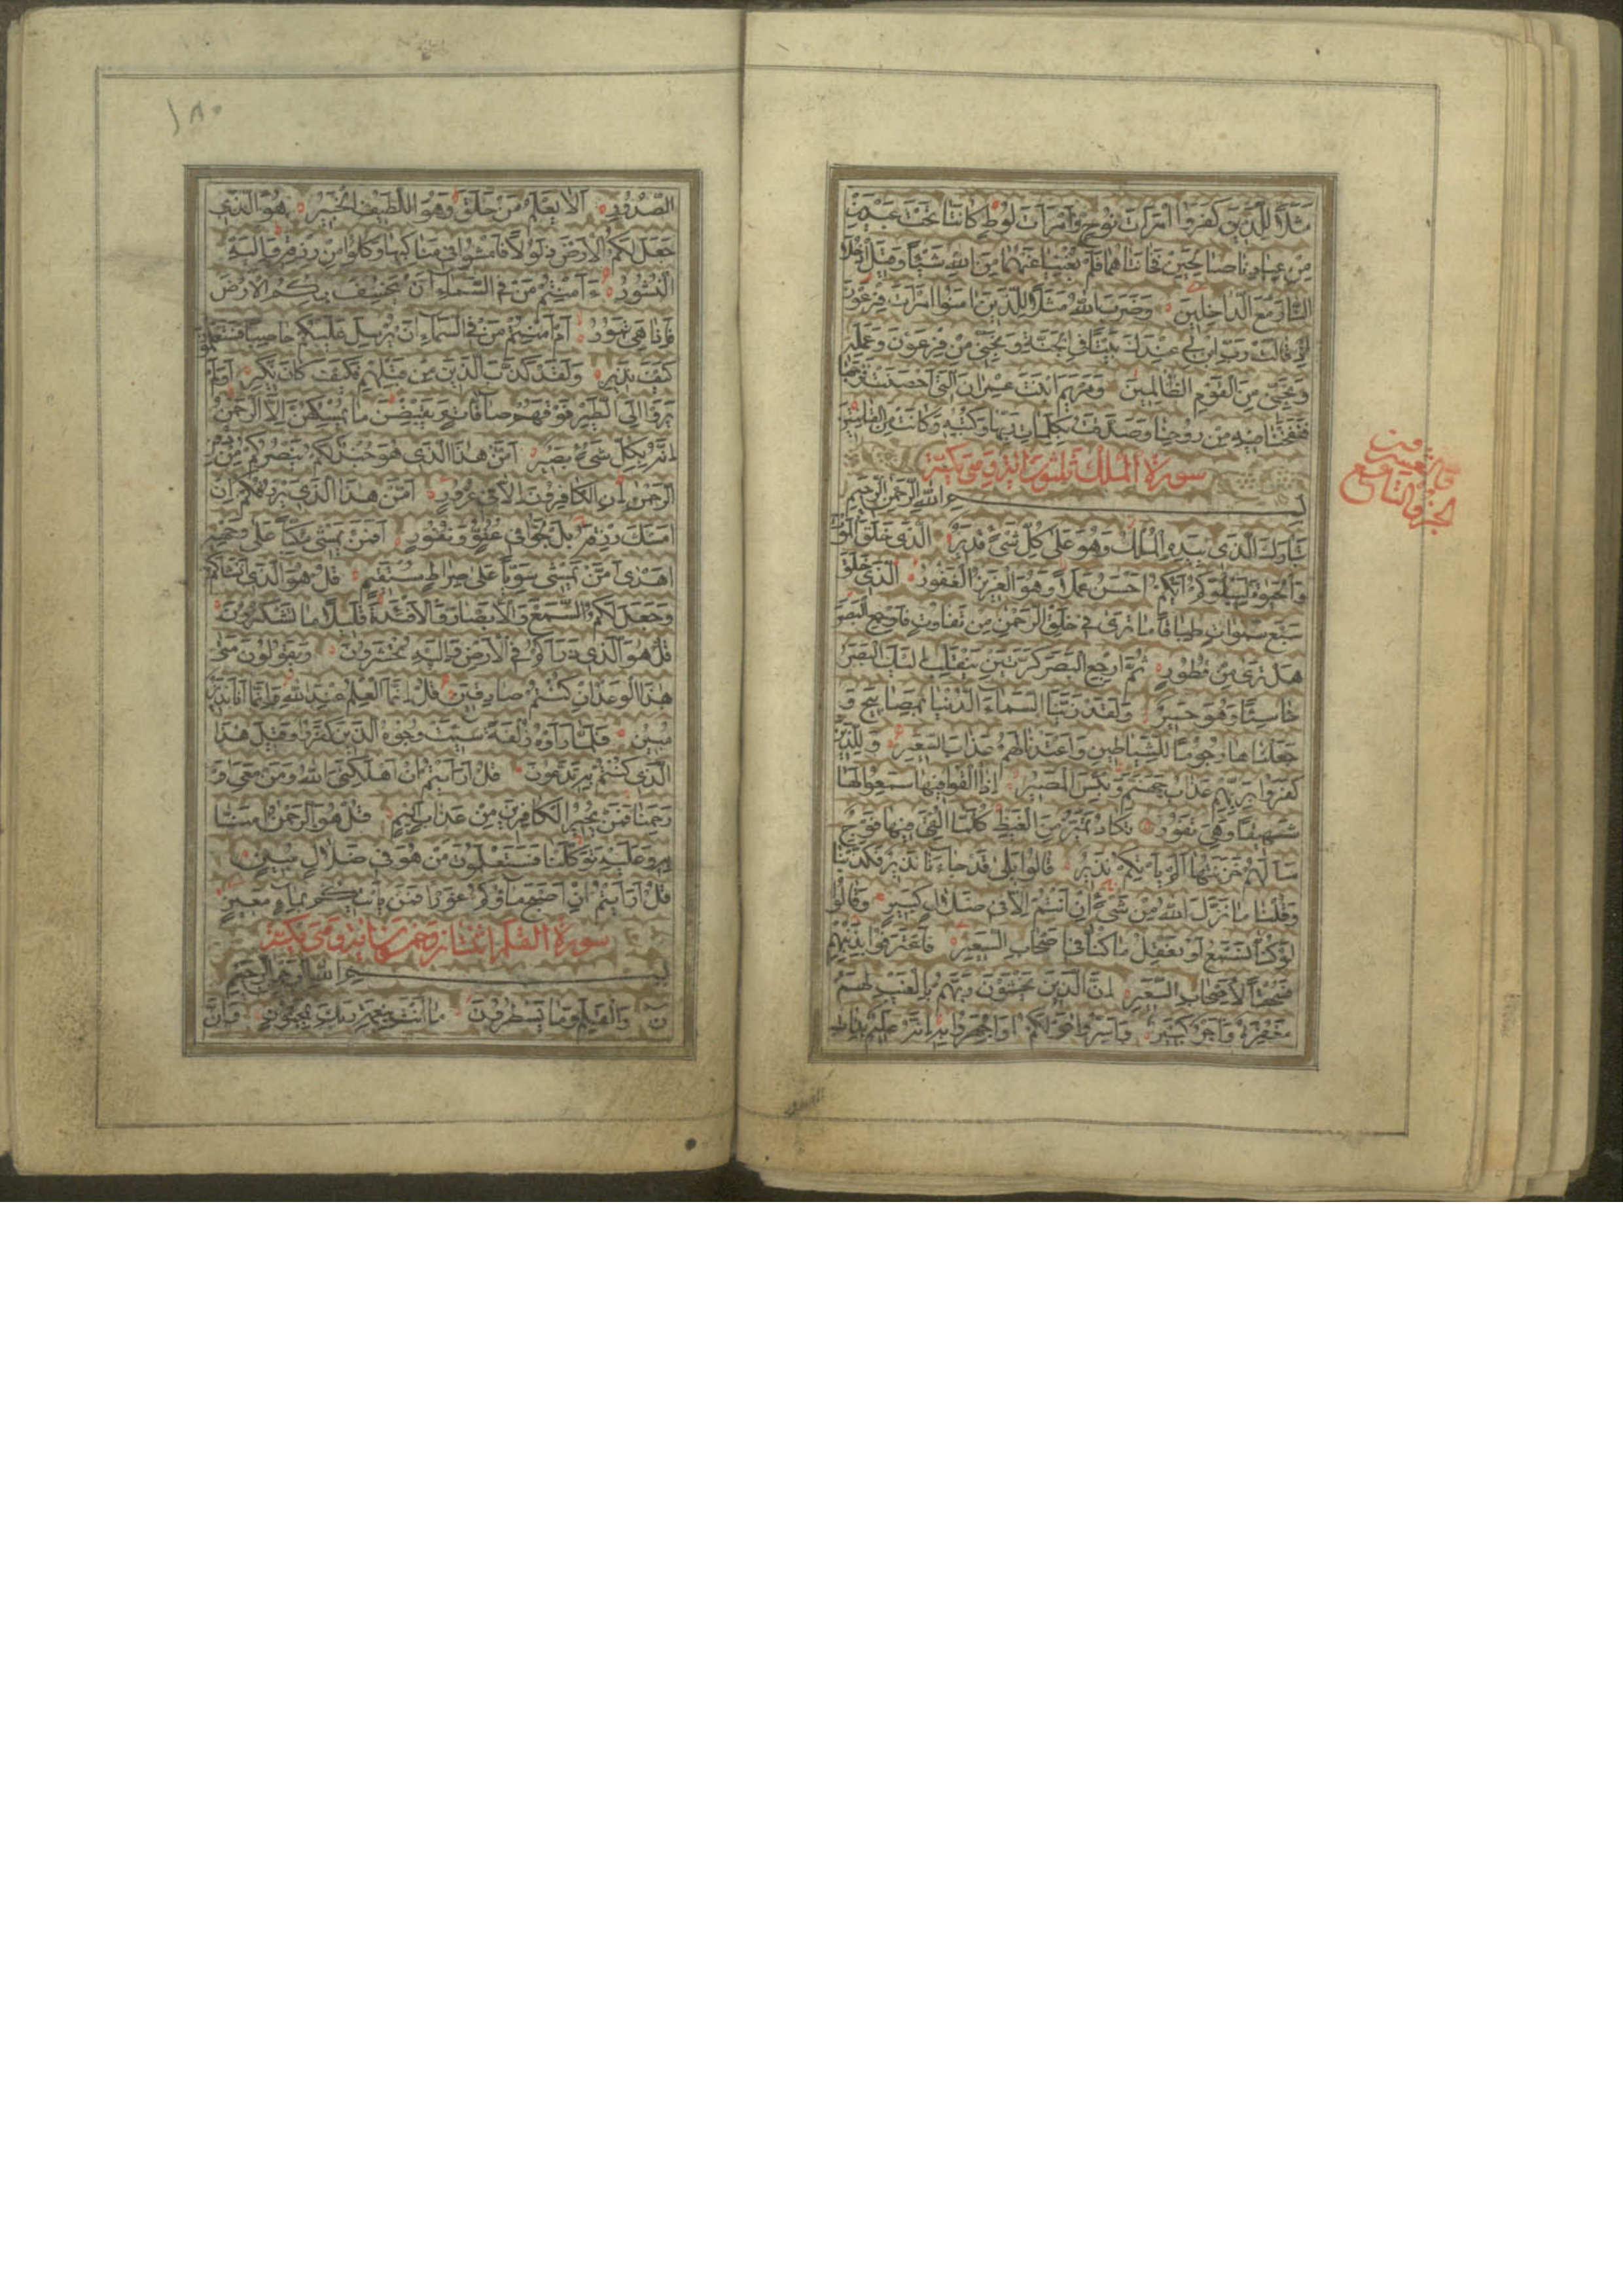 مَثَلًا لِلَّذِينَ كَفَرُوا امْرَأَتَ نُوحٍ وَامْرَأَتَ لُوطٍ كَانَتَا تَحْتَ عَبْدَيْنِ
مِنْ عِبَادِنَا صَالِحَيْنِ فَخَانَتَاهُمَا فَلَمْ يُغْنِيَا عَنْهُمَا مِنَ اللَّهِ شَيْئًا وَقِيلَ ادْخُلَا
النَّارَ مَعَ الدَّاخِلِينَ وَضَرَبَ اللَّهُ مَثَلًا لِلَّذِينَ آمَنُوا امْرَأَتَ فِرْعَوْنَ
إِذْ قَالَتْ رَبِّ ابْنِ لِي عِنْدَكَ بَيْتًا فِي الْجَنَّةِ وَنَجِّنِي مِنْ فِرْعَوْنَ وَعَمَلِهِ
وَنَجِّنِي مِنَ الْقَوْمِ الظَّالِمِينَ وَمَرْيَمَ ابْنَتَ عِمْرَانَ الَّتِي أَحْصَنَتْ فَرْجَهَا
فَنَفَخْنَا فِيهِ مِنْ رُوحِنَا وَصَدَّقَتْ بِكَلِمَاتِ رَبِّهَا وَكُتُبِهِ وَكَانَتْ مِنَ الْقَانِتِينَ
سورة الملك ثلثون اية وهي مكية
بسم الله الرحمن الرحيم
تَبَارَكَ الَّذِي بِيَدِهِ الْمُلْكُ وَهُوَ عَلَى كُلِّ شَيْءٍ قَدِيرٌ الَّذِي خَلَقَ الْمَوْتَ
وَالْحَيٰوةَ لِيَبْلُوَكُمْ أَيُّكُمْ أَحْسَنُ عَمَلًا وَهُوَ الْعَزِيزُ الْغَفُورُ الَّذِي خَلَقَ
سَبْعَ سَمٰوَاتٍ طِبَاقًا مَا تَرَى فِي خَلْقِ الرَّحْمٰنِ مِنْ تَفَاوُتٍ فَارْجِعِ الْبَصَرَ
هَلْ تَرَى مِنْ فُطُورٍ ثُمَّ ارْجِعِ الْبَصَرَ كَرَّتَيْنِ يَنْقَلِبْ إِلَيْكَ الْبَصَرُ
خَاسِئًا وَهُوَ حَسِيرٌ وَلَقَدْ زَيَّنَّا السَّمَاءَ الدُّنْيَا بِمَصَابِيحَ وَ
جَعَلْنَاهَا رُجُومًا لِلشَّيَاطِينِ وَأَعْتَدْنَا لَهُمْ عَذَابَ السَّعِيرِ وَلِلَّذِينَ
كَفَرُوا بِرَبِّهِمْ عَذَابُ جَهَنَّمَ وَبِئْسَ الْمَصِيرُ إِذَا أُلْقُوا فِيهَا سَمِعُوا لَهَا
شَهِيقًا وَهِيَ تَفُورُ تَكَادُ تَمَيَّزُ مِنَ الْغَيْظِ كُلَّمَا أُلْقِيَ فِيهَا فَوْجٌ
سَأَلَهُمْ خَزَنَتُهَا أَلَمْ يَأْتِكُمْ نَذِيرٌ قَالُوا بَلَى قَدْ جَاءَنَا نَذِيرٌ فَكَذَّبْنَا
وَقُلْنَا مَا نَزَّلَ اللَّهُ مِنْ شَيْءٍ إِنْ أَنْتُمْ إِلَّا فِي ضَلَالٍ كَبِيرٍ وَقَالُوا
لَوْ كُنَّا نَسْمَعُ أَوْ نَعْقِلُ مَا كُنَّا فِي أَصْحَابِ السَّعِيرِ فَاعْتَرَفُوا بِذَنْبِهِمْ
فَسُحْقًا لِأَصْحَابِ السَّعِيرِ إِنَّ الَّذِينَ يَخْشَوْنَ رَبَّهُمْ بِالْغَيْبِ لَهُمْ
مَغْفِرَةٌ وَأَجْرٌ كَبِيرٌ وَأَسِرُّوا قَوْلَكُمْ أَوِ اجْهَرُوا بِهِ إِنَّهُ عَلِيمٌ بِذَاتِ
الجزو التاسع
والعشرون
١٨٠
الصُّدُورِ أَلَا يَعْلَمُ مَنْ خَلَقَ وَهُوَ اللَّطِيفُ الْخَبِيرُ هُوَ الَّذِي
جَعَلَ لَكُمُ الْأَرْضَ ذَلُولًا فَامْشُوا فِي مَنَاكِبِهَا وَكُلُوا مِنْ رِزْقِهِ وَإِلَيْهِ
النُّشُورُ ءَأَمِنْتُمْ مَنْ فِي السَّمَاءِ أَنْ يَخْسِفَ بِكُمُ الْأَرْضَ
فَإِذَا هِيَ تَمُورُ أَمْ أَمِنْتُمْ مَنْ فِي السَّمَاءِ أَنْ يُرْسِلَ عَلَيْكُمْ حَاصِبًا فَسَتَعْلَمُونَ
كَيْفَ نَذِيرِ وَلَقَدْ كَذَّبَ الَّذِينَ مِنْ قَبْلِهِمْ فَكَيْفَ كَانَ نَكِيرِ أَوَلَمْ
يَرَوْا إِلَى الطَّيْرِ فَوْقَهُمْ صَافَّاتٍ وَيَقْبِضْنَ مَا يُمْسِكُهُنَّ إِلَّا الرَّحْمٰنُ
إِنَّهُ بِكُلِّ شَيْءٍ بَصِيرٌ أَمَّنْ هٰذَا الَّذِي هُوَ جُنْدٌ لَكُمْ يَنْصُرُكُمْ مِنْ دُونِ
الرَّحْمٰنِ إِنِ الْكَافِرُونَ إِلَّا فِي غُرُورٍ أَمَّنْ هٰذَا الَّذِي يَرْزُقُكُمْ إِنْ
أَمْسَكَ رِزْقَهُ بَلْ لَجُّوا فِي عُتُوٍّ وَنُفُورٍ أَفَمَنْ يَمْشِي مُكِبًّا عَلَى وَجْهِهِ
أَهْدَى أَمَّنْ يَمْشِي سَوِيًّا عَلَى صِرَاطٍ مُسْتَقِيمٍ قُلْ هُوَ الَّذِي أَنْشَأَكُمْ
وَجَعَلَ لَكُمُ السَّمْعَ وَالْأَبْصَارَ وَالْأَفْئِدَةَ قَلِيلًا مَا تَشْكُرُونَ
قُلْ هُوَ الَّذِي ذَرَأَكُمْ فِي الْأَرْضِ وَإِلَيْهِ تُحْشَرُونَ وَيَقُولُونَ مَتَى
هٰذَا الْوَعْدُ إِنْ كُنْتُمْ صَادِقِينَ قُلْ إِنَّمَا الْعِلْمُ عِنْدَ اللَّهِ وَإِنَّمَا أَنَا نَذِيرٌ
مُبِينٌ فَلَمَّا رَأَوْهُ زُلْفَةً سِيئَتْ وُجُوهُ الَّذِينَ كَفَرُوا وَقِيلَ هٰذَا
الَّذِي كُنْتُمْ بِهِ تَدَّعُونَ قُلْ أَرَأَيْتُمْ إِنْ أَهْلَكَنِيَ اللَّهُ وَمَنْ مَعِيَ أَوْ
رَحِمَنَا فَمَنْ يُجِيرُ الْكَافِرِينَ مِنْ عَذَابٍ أَلِيمٍ قُلْ هُوَ الرَّحْمٰنُ آمَنَّا
بِهِ وَعَلَيْهِ تَوَكَّلْنَا فَسَتَعْلَمُونَ مَنْ هُوَ فِي ضَلَالٍ مُبِينٍ
قُلْ أَرَأَيْتُمْ إِنْ أَصْبَحَ مَاؤُكُمْ غَوْرًا فَمَنْ يَأْتِيكُمْ بِمَاءٍ مَعِينٍ
سورة القلم اثنتان وخمسون اية وهي مكية
بسم الله الرحمن الرحيم
ن وَالْقَلَمِ وَمَا يَسْطُرُونَ مَا أَنْتَ بِنِعْمَةِ رَبِّكَ بِمَجْنُونٍ وَإِنَّ